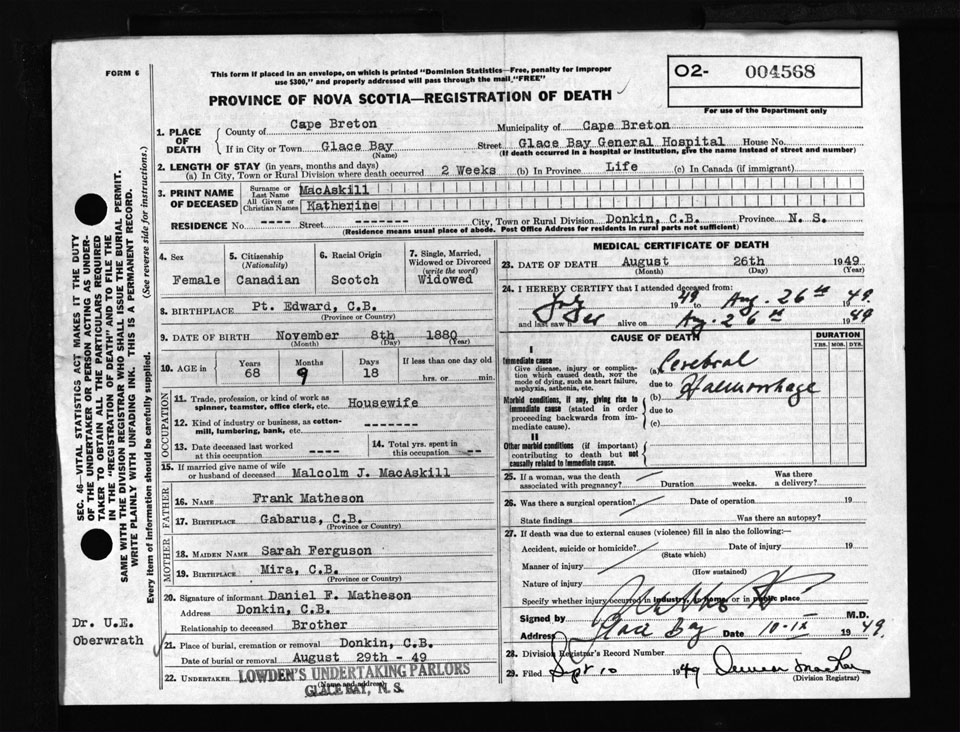 FORM 6
This form if placed in an envelope, on which is printed "Dominion Statistics—Free, penalty for improper
use $300," and properly addressed will pass through the mail "FREE"
O2- 004568
For use of the Department only
PROVINCE OF NOVA SCOTIA—REGISTRATION OF DEATH
SEC. 46—VITAL STATISTICS ACT MAKES IT THE DUTY
OF THE UNDERTAKER OR PERSON ACTING AS UNDER-
TAKER TO OBTAIN ALL THE PARTICULARS REQUIRED
IN THE "REGISTRATION OF DEATH" AND TO FILE THE
SAME WITH THE DIVISION REGISTRAR WHO SHALL ISSUE THE BURIAL PERMIT.
WRITE PLAINLY WITH UNFADING INK. THIS IS A PERMANENT RECORD.
Every item of information should be carefully supplied. (See reverse side for instructions.)
1. PLACE OF DEATH
County of Cape Breton Municipality of Cape Breton
If in City or Town Glace Bay Street Glace Bay General Hospital House No.
(Name) (If death occurred in a hospital or institution, give the name instead of street and number)
2. LENGTH OF STAY (in years, months and days)
(a) In City, Town or Rural Division where death occurred 2 Weeks (b) In Province Life (c) In Canada (if immigrant)
3. PRINT NAME OF DECEASED
Surname or Last Name MacAskill
All Given or Christian Names Katherine
RESIDENCE No. ---- Street -------- City, Town or Rural Division Donkin, C.B. Province N. S.
(Residence means usual place of abode. Post Office Address for residents in rural parts not sufficient)
4. Sex
Female
5. Citizenship
(Nationality)
Canadian
6. Racial Origin
Scotch
7. Single, Married,
Widowed or Divorced
(write the word)
Widowed
8. BIRTHPLACE Pt. Edward, C.B.
(Province or Country)
9. DATE OF BIRTH November 8th 1880
(Month) (Day) (Year)
10. AGE in
Years Months Days If less than one day old
68 9 18 hrs. or min.
OCCUPATION
11. Trade, profession, or kind of work as
spinner, teamster, office clerk, etc. Housewife
12. Kind of industry or business, as cotton-
mill, lumbering, bank, etc.
13. Date deceased last worked
at this occupation ----
14. Total yrs. spent in
this occupation --
15. If married give name of wife
or husband of deceased Malcolm J. MacAskill
FATHER
16. NAME Frank Matheson
17. BIRTHPLACE Gabarus, C.B.
(Province or Country)
MOTHER
18. MAIDEN NAME Sarah Ferguson
19. BIRTHPLACE Mira, C.B.
(Province or Country)
20. Signature of informant Daniel F. Matheson
Address Donkin, C.B.
Relationship to deceased Brother
Dr. U.E.
Oberwrath
21. Place of burial, cremation or removal Donkin, C.B.
Date of burial or removal August 29th - 49
22. UNDERTAKER LOWDEN'S UNDERTAKING PARLORS
(Name and address)
GLACE BAY, N. S.
MEDICAL CERTIFICATE OF DEATH
23. DATE OF DEATH August 26th 1949
(Month) (Day) (Year)
24. I HEREBY CERTIFY that I attended deceased from:
1949 to Aug. 26th 1949
and last saw her alive on Aug. 26th 1949
CAUSE OF DEATH
DURATION
YRS. MOS. DYS.
I
Immediate cause
Give disease, injury or complica-
tion which caused death, NOT the
mode of dying, such as heart failure,
asphyxia, asthenia, etc.
(a) Cerebral
due to
Morbid conditions, if any, giving rise to
immediate cause (stated in order
proceeding backwards from im-
mediate cause).
(b) Haemorrhage
due to
(c)
II
Other morbid conditions (if important)
contributing to death but not
causally related to immediate cause.
25. If a woman, was the death
associated with pregnancy? Duration weeks. Was there
a delivery?
26. Was there a surgical operation? Date of operation 19
State findings Was there an autopsy?
27. If death was due to external causes (violence) fill in also the following:—
Accident, suicide or homicide? Date of injury 19
(State which)
Manner of injury
(How sustained)
Nature of injury
Specify whether injury occurred in industry, in home, or in public place
Signed by M.D.
Address Glace Bay Date 10-IX 1949.
28. Division Registrar's Record Number
29. Filed Sept 10 1949
(Division Registrar)